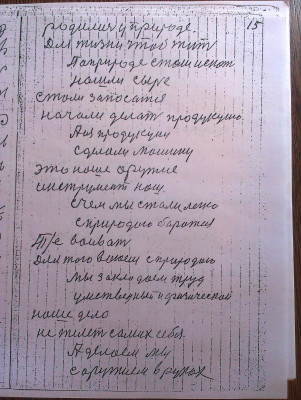 15
родились у природе.
Для жизни чтоб жит
А природе стали искат
нашли сыре
стали запосатся
начали делат продукцию.
А из продукции
сделали машину
это наше оружие
инструмент наш.
С чем мы стали легко
с природою баротся
Т/е воват
Для того воюем с природою
мы закладаем труд
умственый и физической
наше дело
не жилет самих себя.
А делаем мы
с оружием в руках